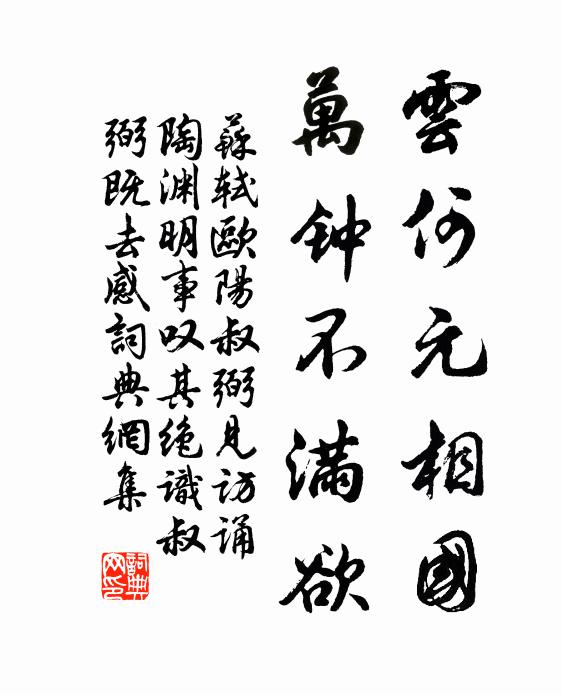 雲何元相國
萬钟不滿欲
蘇軾歐陽叔弼見访诵
陶渊明事叹其绝識叔
弼既去感詞典網集
詞典
网印